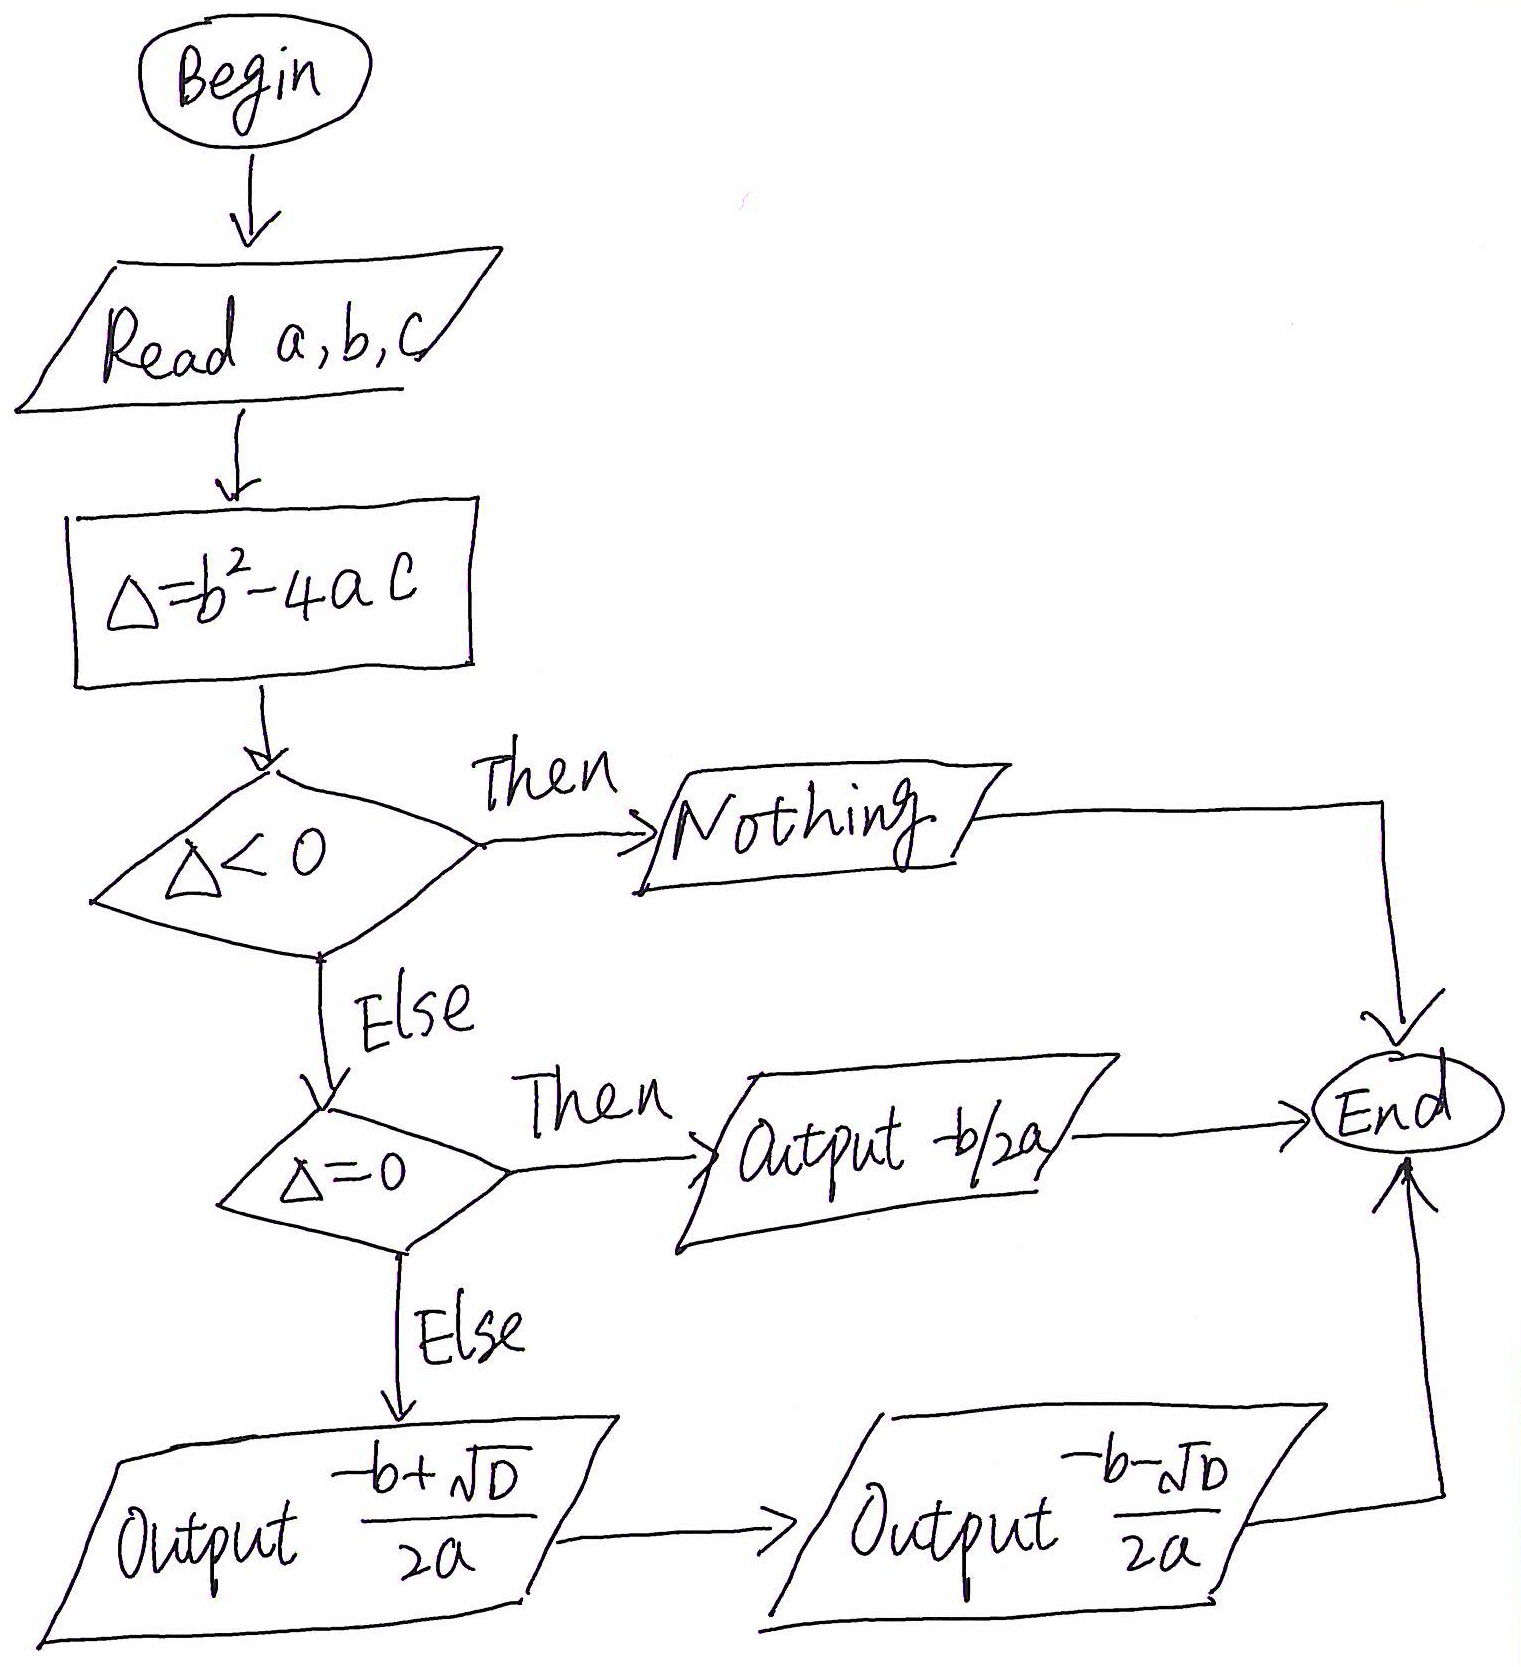 Begin
Read a, b, c
Δ=b²-4ac
Δ<0
Then
Nothing
Else
Δ=0
Then
Output -b/2a
End
Else
Output (-b+√D)/2a
Output (-b-√D)/2a